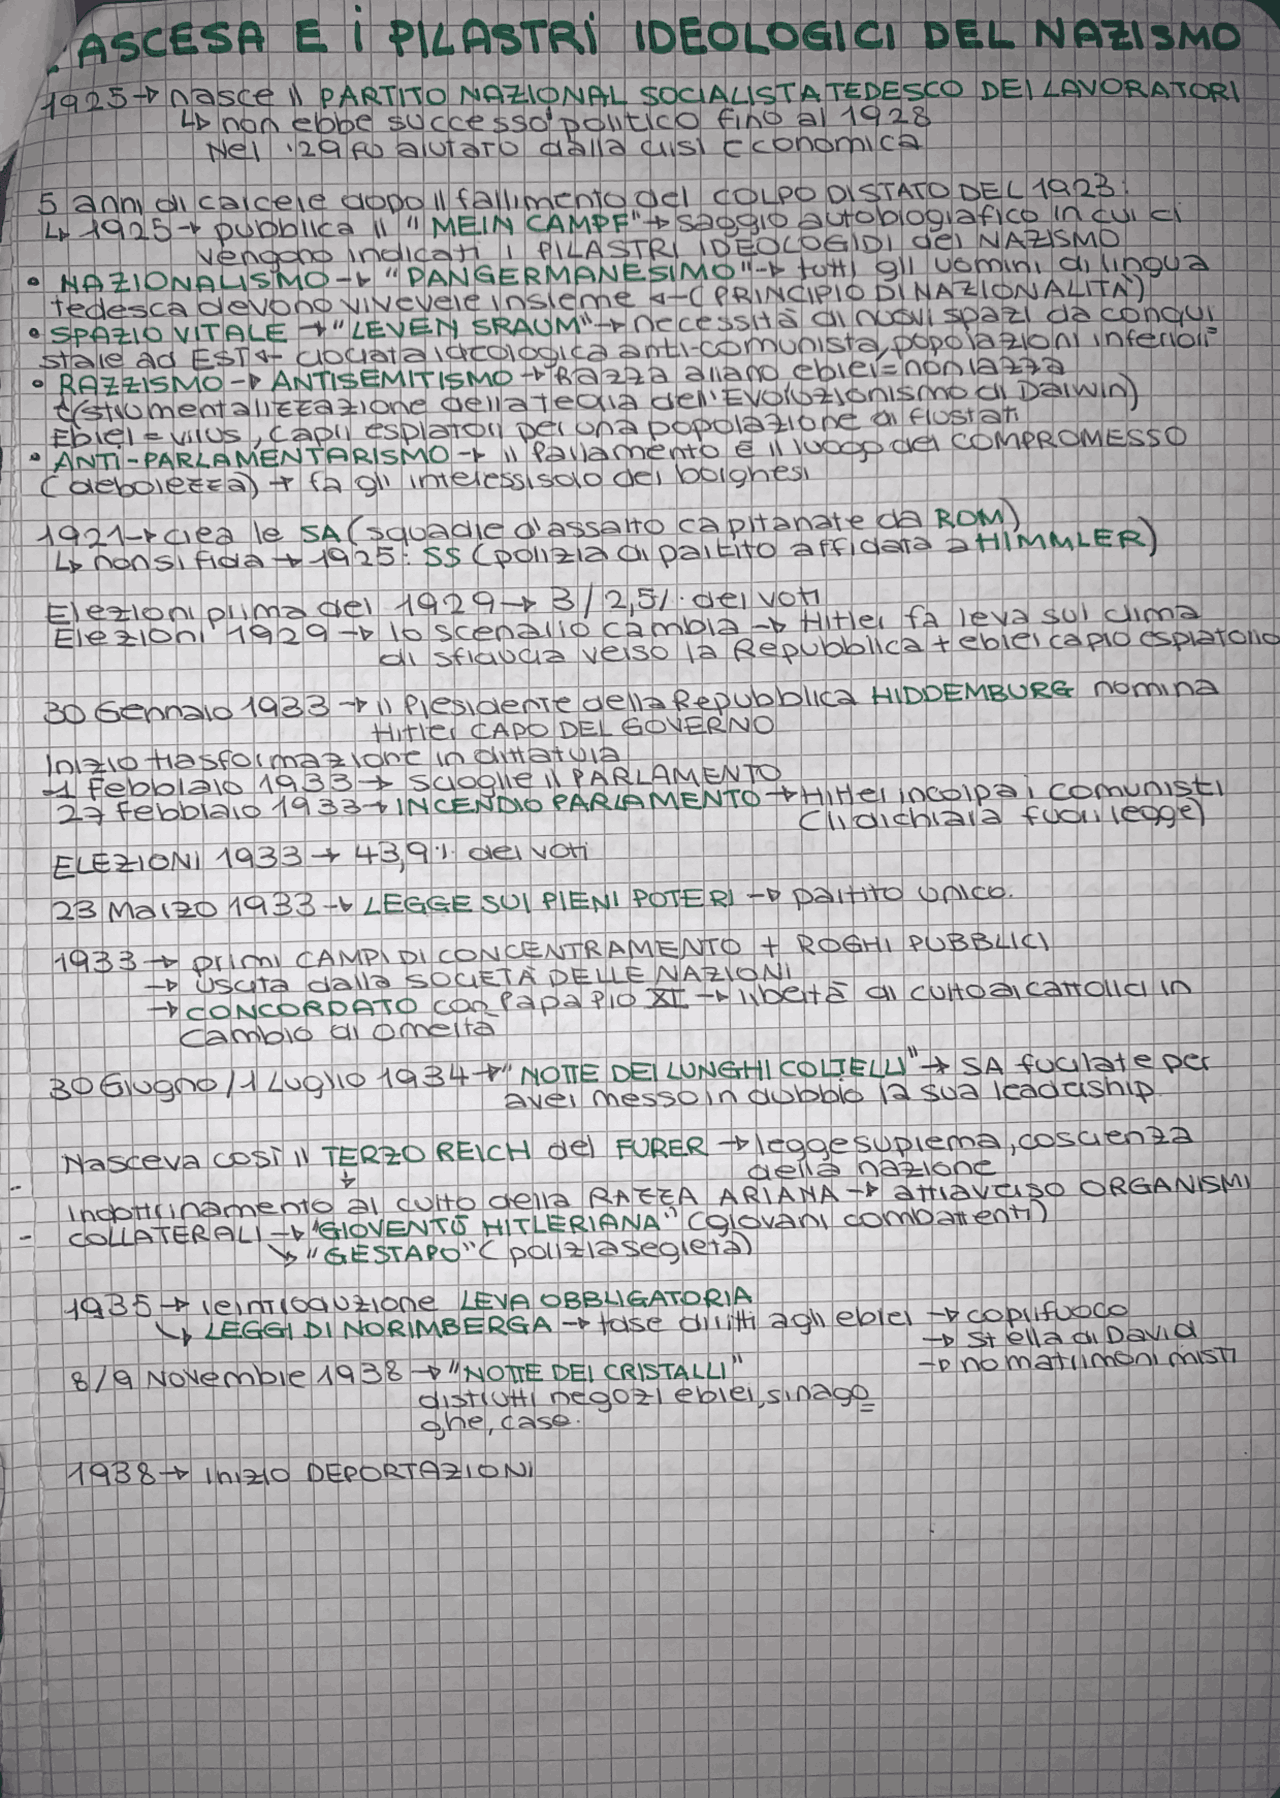 . ASCESA E i PILASTRI IDEOLOGICI DEL NAZISMO
1925 → nasce il PARTITO NAZIONAL SOCIALISTA TEDESCO DEI LAVORATORI
↳ non ebbe successo politico fino al 1928
Nel '29 fu aiutato dalla crisi economica
5 anni di carcere dopo il fallimento del COLPO DI STATO DEL 1923:
↳ 1925 → pubblica il "MEIN CAMPF" → saggio autobiografico in cui ci
vengono indicati i PILASTRI IDEOLOGIDI del NAZISMO
• NAZIONALISMO → "PANGERMANESIMO" → tutti gli uomini di lingua
tedesca devono vivevere insieme ← (PRINCIPIO DI NAZIONALITÀ)
• SPAZIO VITALE → "LEVEN SRAUM" → necessità di nuovi spazi da conqui
stare ad EST ← crociata ideologica anti-comunista, popolazioni inferiori
• RAZZISMO → ANTISEMITISMO → Razza ariana ebrei = non razza
(strumentalizzazione della teoria dell'Evoluzionismo di Darwin)
Ebrei = virus, capri espiatori per una popolazione di flustati
• ANTI-PARLAMENTARISMO → il Parlamento è il luogo del COMPROMESSO
(debolezza) → fa gli interessi solo dei borghesi
1921 → crea le SA (squadre d'assalto capitanate da ROM)
↳ non si fida → 1925: SS (polizia di partito affidata a HIMMLER)
Elezioni prima del 1929 → 3/2,5% dei voti
Elezioni 1929 → lo scenario cambia → Hitler fa leva sul clima
di sfiducia verso la Repubblica + ebrei capro espiatorio
30 Gennaio 1933 → il Presidente della Repubblica HIDDEMBURG nomina
Hitler CAPO DEL GOVERNO
Inizio trasformazione in dittatura
1 Febbraio 1933 → scioglie il PARLAMENTO
27 febbraio 1933 → INCENDIO PARLAMENTO → Hitler incolpa i comunisti
(li dichiara fuori legge)
ELEZIONI 1933 → 43,9% dei voti
23 Marzo 1933 → LEGGE SUI PIENI POTERI → partito unico.
1933 → primi CAMPI DI CONCENTRAMENTO + ROGHI PUBBLICI
→ uscita dalla SOCIETÀ DELLE NAZIONI
→ CONCORDATO con Papa Pio XI → libertà di culto ai cattolici in
cambio di omertà
30 Giugno / 1 Luglio 1934 → "NOTTE DEI LUNGHI COLTELLI" → SA fucilate per
aver messo in dubbio la sua leadership.
Nasceva così il TERZO REICH del FURER → legge suprema, coscienza
↓ della nazione
- Indottrinamento al culto della RAZZA ARIANA → attraverso ORGANISMI
- COLLATERALI → "GIOVENTÙ HITLERIANA" (giovani combattenti)
↘ "GESTAPO" (polizia segreta)
1935 → reintroduzione LEVA OBBLIGATORIA
↳ LEGGI DI NORIMBERGA → tolse diritti agli ebrei → coprifuoco
→ Stella di David
→ no matrimoni misti
8/9 Novembre 1938 → "NOTTE DEI CRISTALLI"
distrutti negozi ebrei, sinago
ghe, case.
1938 → inizio DEPORTAZIONI